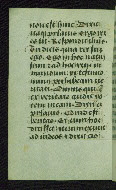 non est hunc. Dixit
itaq; ei pylatus. Ergo rex
es tu. Respondit ihesus.
Tu dicis quia rex sum
ego. Ego in hoc natus
sum et ad hoc veni in
mundum ut testimo
nium perhibeam ve
ritati. Omnis qui est
ex veritate audit vo
cem meam. Dicit ei
pylatus. Quid est
veritas. Et cum hoc
dixisset iterum exivit
ad iudeos et dixit eis.